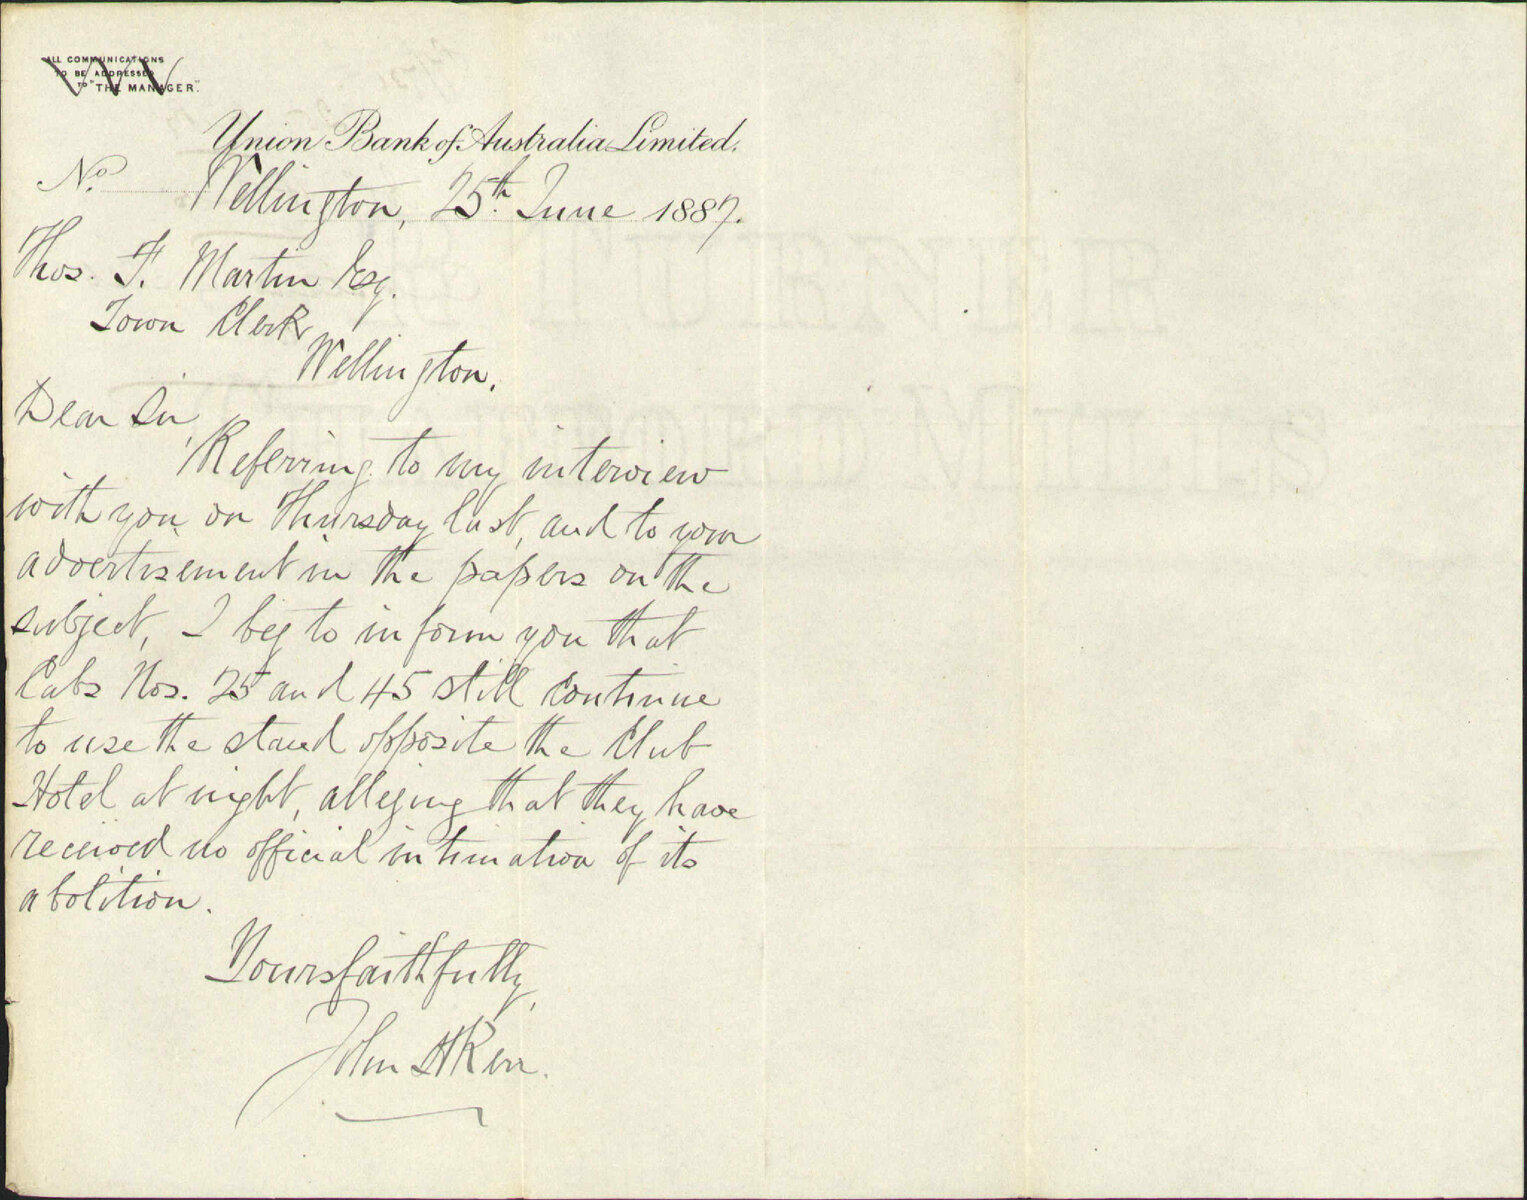 ALL COMMUNICATIONS
TO BE ADDRESSED
TO "THE MANAGER".
Union Bank of Australia Limited.
No. Wellington, 25th June 1887.
Thos. F. Martin Esq.
Town Clerk
Wellington.
Dear Sir,
Referring to my interview
with you on Thursday last, and to your
advertisement in the papers on the
subject, I beg to inform you that
Cabs Nos. 25 and 45 still continue
to use the stand opposite the Club
Hotel at night, alleging that they have
received no official intimation of its
abolition.
Yours faithfully,
John H Kerr.